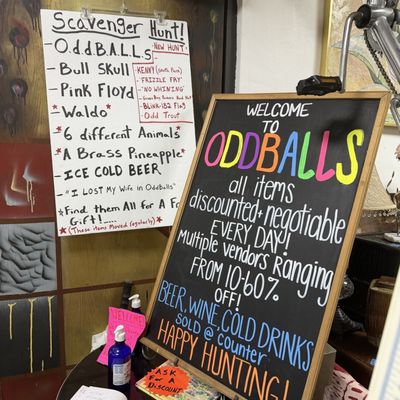 Scavenger Hunt!
-OddBALLs
- Bull Skull
- Pink Floyd
*- Waldo *
*6 different Animals*
*A Brass Pineapple*
-ICE COLD BEER
-"I LOST MY Wife in OddBalls"
*Find them All For A
Gift!
*(These items Moved regularly)*
*NEW HUNT*
-KENNY (South Park)
-'FRIZZLE FRY'
-"NO WHINING"
-BLINK-182 Flag
-Odd Trout
WELCOME
TO
ODDBALLS
all items
discounted+negotiable
EVERY DAY!
Multiple vendors Ranging
FROM 10-60%
OFF!
BEER, WINE, COLD DRINKS
Sold @ counter
HAPPY HUNTING!
ASK
FOR A
DISCOUNT